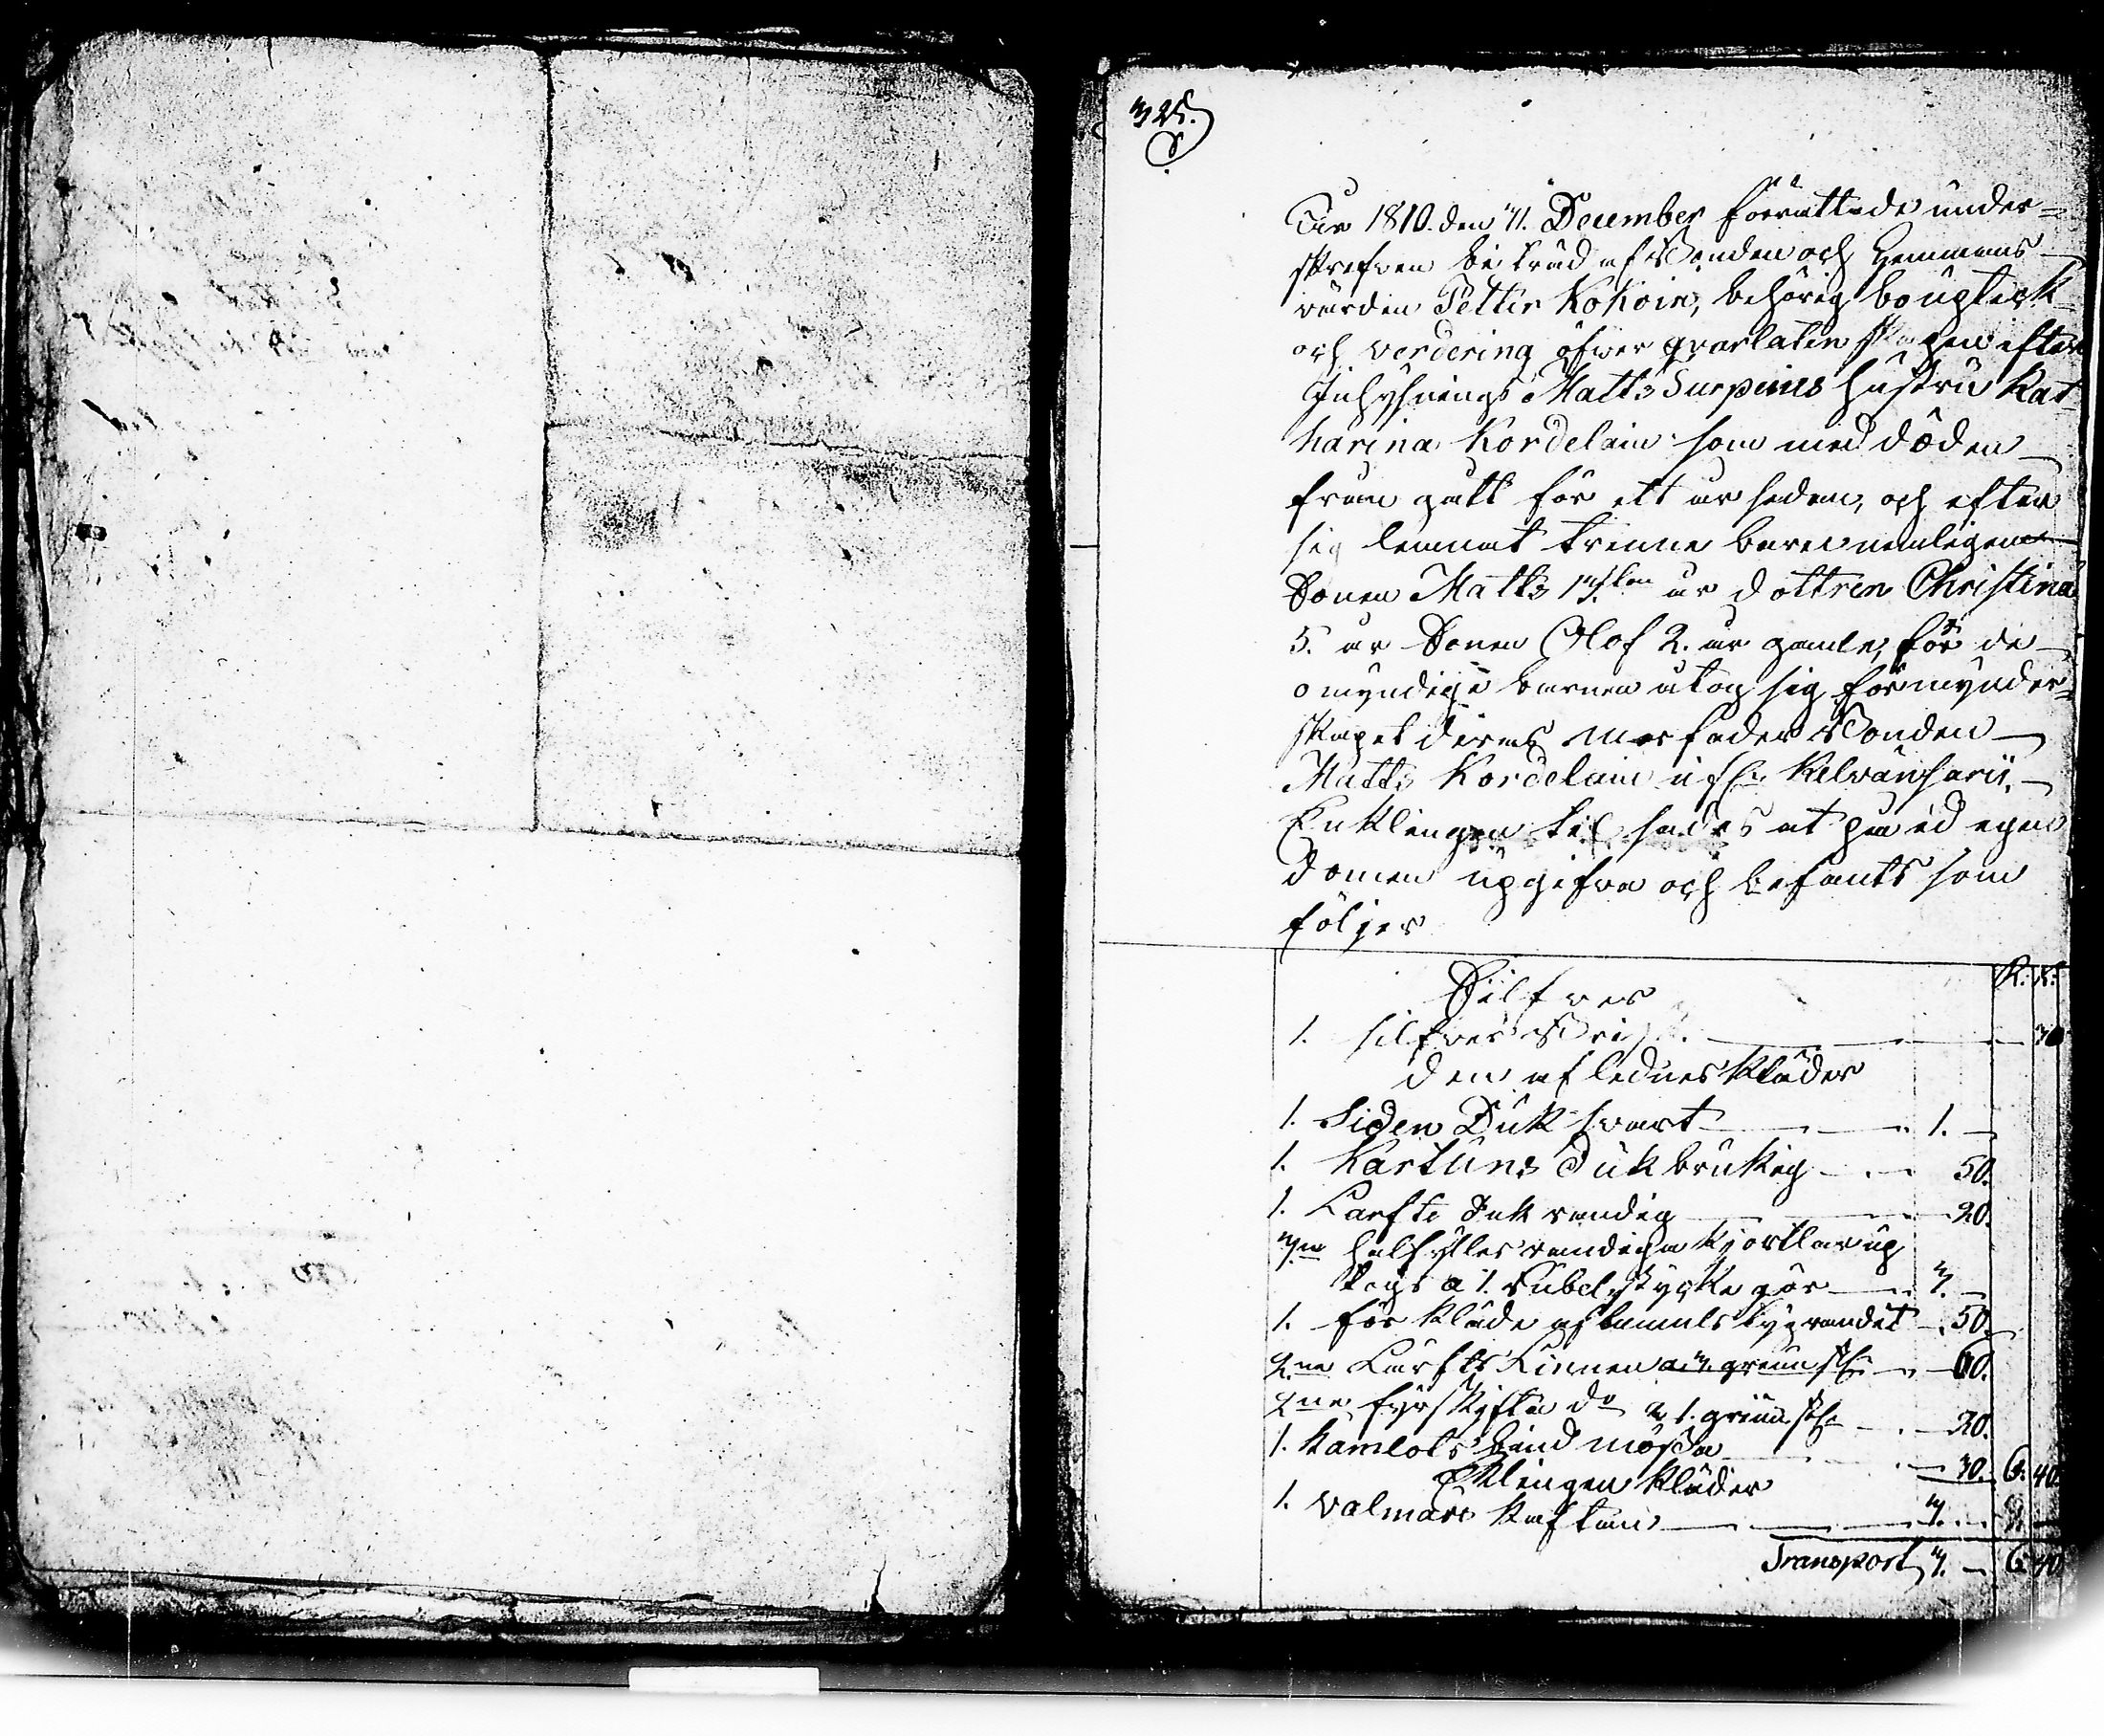 325.
År 1810. den 11. December förrättade under=
skrefven biträd af Bonden och Hemmans
värden Petter Kokoin, behörig boupteck
och verdering öfwer qvarlåtenskapen efter
Inhysnings Matts Surpeins hustru Kat
harina Kordelain som med döden
från gått för ett år sedan, och efter
sig lemnat trenne barn nemligen
Sonen Matts 13. år dottren Christina
5. år Sonen Olof 2. år gamle, för de
omyndige barnen åtog sig förmynder=
skapet deras morfader Bonden
Matts Kordelain ifrån Kelvänsarii.
Enklingen til sades at på ed egen
domen upgifva och befants som
följer
R. K.
Silfver
1. silfver 30
den aflednes kläder
1. Siden Duk svart 1. —
1. Kartuns Duk brukig 50.
1. Lärfts Duk randig 20.
3ne halfylles randiga kjortlar up
togs a 1. Rubel stycke gör 3. —
1. för kläde af bomuls tyg randit 50.
2ne Lärfts Linnen 60.
2ne fyrskifta do 20.
1. Kamlots bind mössa 30. 6. 40.
Enklingen kläder
1. valmars Kaftan 3. —
Transport 3. — 6 40